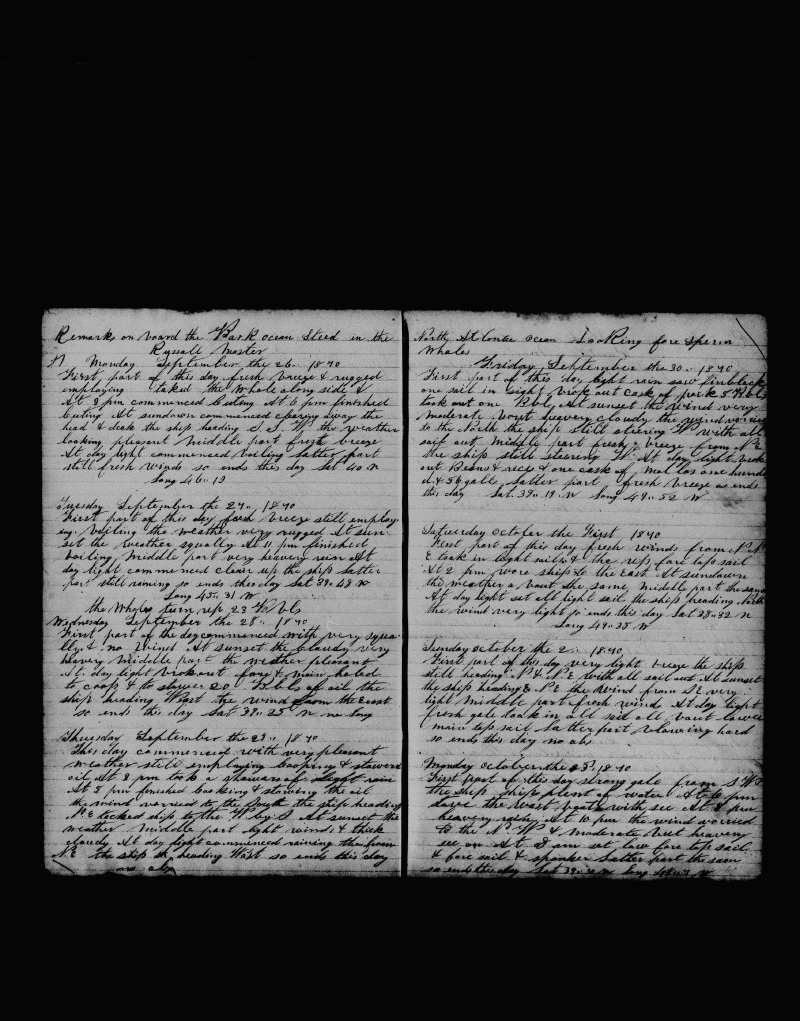 Remarks on board the Bark ocean Steed in the
Russall Master
Monday September the 26.. 1870
First part of this day fresh breeze & rugged
employing taked the whale along side &
At 3 pm commenced Cuting At 6 pm finished
Cuting At sundown commenced clearing away the
head & deck the ship heading S. S. W. the weather
looking pleasant Middle part fresh breeze
At day light commenced boiling Latter part
still fresh winds so ends this day Lat 40 N
Long 46.. 19
Tuesday September the 27.. 1870
First part of this day fresh breeze still employ-
ing boiling the weather very rugged At sun-
set the weather squally At 11 pm finished
boiling Middle part very heavery rain At
day light commenced clear up the ship Latter
part still raining so ends this day Lat 39.. 48 N
Long 45.. 31 W
the Whales turn up 23 Bbls
Wednesday September the 28.. 1870
First part of the day commenced with very squa-
lly & no wind At sunset the cloudy very
heavery Middle part the weather pleasant
At day light brokout fore & main hated
to coop & to stower 20 Bbls of oil the
ship heading West the wind from the East
so ends this day Lat 39.. 25 N no long
Thuesday September the 29.. 1870
This day commenced with very pleasant
weather still employing cooping & stowers
oil At 3 pm took a showers of light rain
At 5 pm finished cooking & stowing the oil
the wind varried to the South the ship heading
N. E tacked ship to the W by S At sunset the
weather Middle part light winds & thick
cloudy At day light commenced raining the from
N. E the ship heading West so ends this day
no obs
North Atlantic Ocean Looking fore Sperm
Whales
Friday September the 30.. 1870
First part of this day light rain saw finbacks
one sail in sight brok out cask of pork 5 Bbls
took out one Bbls At sunset the wind very
moderate but heavery cloudy the wind varried
to the North the ship still steering W with all
sail out Middle part fresh breeze from N. E
the ship still steering W. At day light brok
out Beans & rice & one cask of Molasses one hundr
d. & 56 gall. Latter part fresh breeze so ends
this day Lat. 39.. 19 N Long 49.. 52 W
Saturday october the First 1870
First part of this day fresh winds from N. N.
E took in light sails & the rep. fore top sail
At 2 pm wore ship to the East At sundown
the weather a bout the same Middle part the same
At day light set all light sail the ship heading North
the wind very light so ends this day Lat 38.. 32 N
Long 49.. 38 W
Sunday october the 2.. 1870
First part of this day very light breeze the ship
still heading N & N. E with all sail out At sunset
the ship heading E. N. E the wind from S. E very
light Middle part fresh wind At day light
fresh gale took in all sail all but lower
main top sail Latter part blowing hard
so ends this day no obs
Monday october the 3.. 1870
First part of this day strong gale from S. W
the ship ship plent of water At 6 pm
heavery rain At 10 pm the wind varried
to the N. W & moderate but heavery
see on At 8 am set low fore top sail
& fore sail & spanker Latter part the same
so ends this day Lat 39..